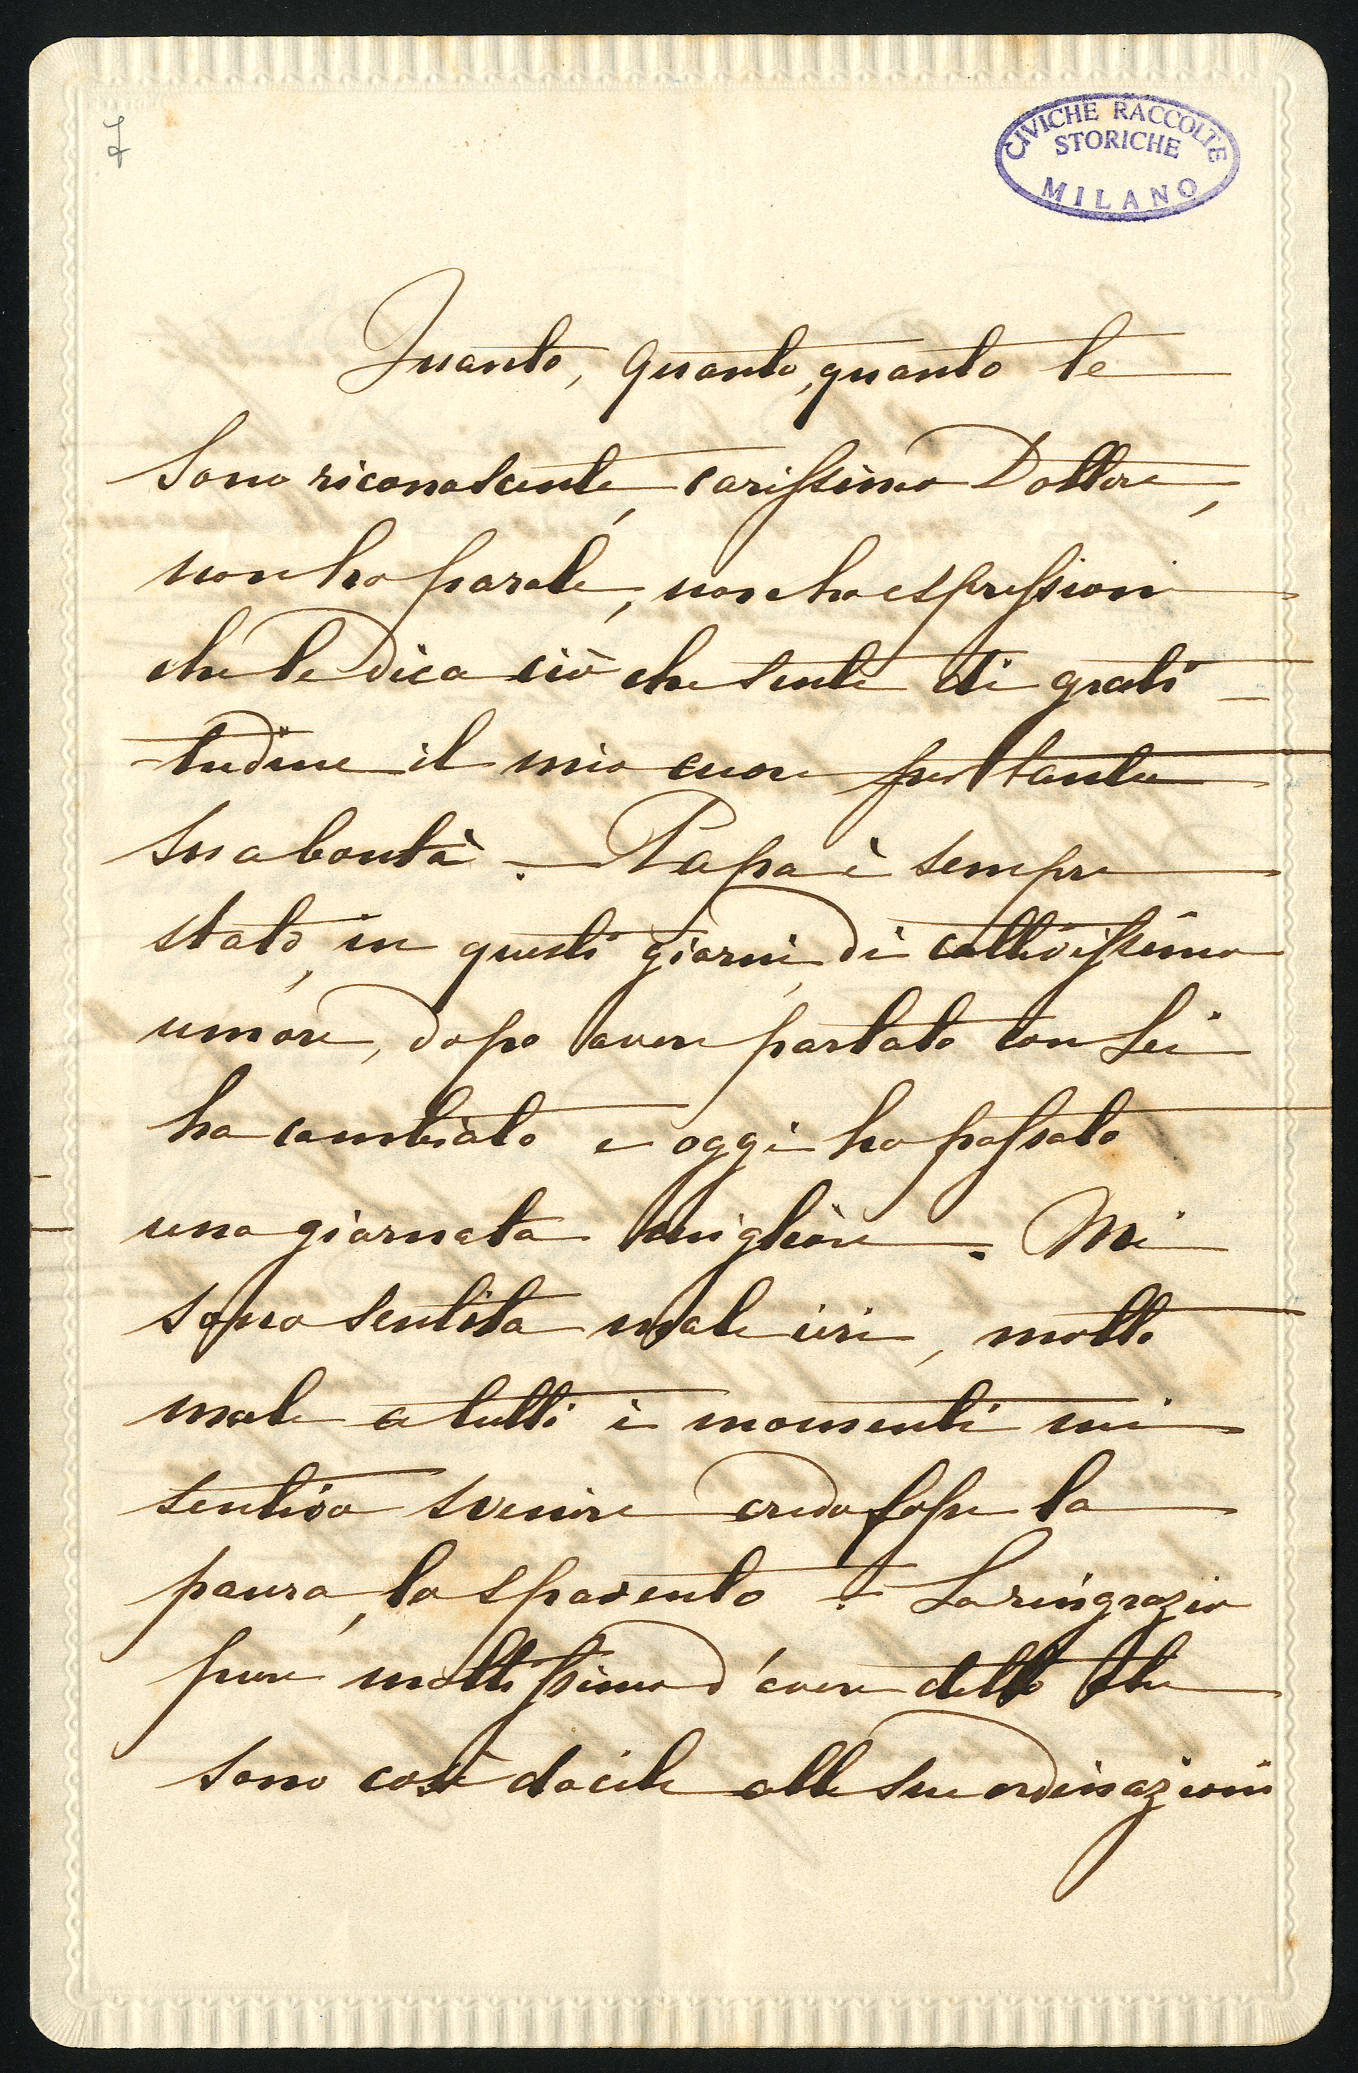 7
CIVICHE RACCOLTE
STORICHE
MILANO
Quanto, quanto, quanto le
sono riconoscente, carissimo Dottore,
non ho parole, non ho espressioni
che le dica ciò che sente di grati-
-tudine il mio cuore per tanta
sua bontà. Papa è sempre
stato, in questi giorni, di cattivissimo
umore, dopo avere parlato con Lei
ha cambiato e oggi ho passato
una giornata migliore. Mi
sono sentita male ieri, molto
male a tutti i momenti mi
sentiva svenire credo fosse la
paura, lo spavento. La ringrazio
pure moltissimo d'avere detto che
sono così docile alle sue ordinazioni